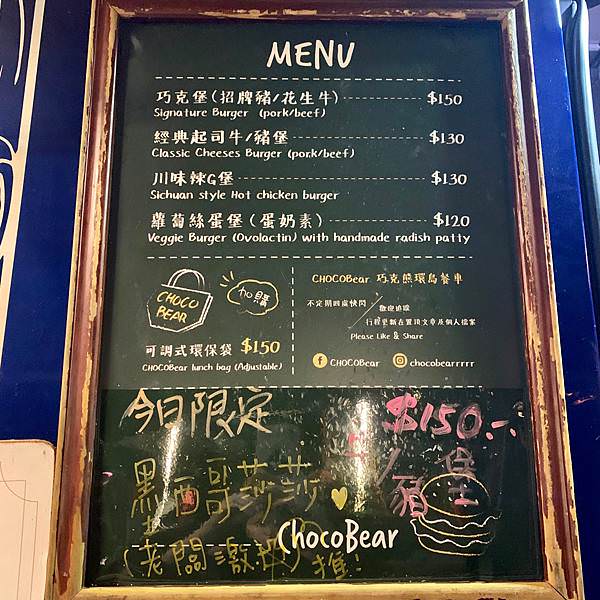 MENU
巧克堡(招牌豬/花生牛) $150
Signature Burger (pork/beef)
經典起司牛/豬堡 $130
Classic Cheeses Burger (pork/beef)
川味辣G堡 $130
Sichuan style Hot chicken burger
蘿蔔絲蛋堡(蛋奶素) $120
Veggie Burger (Ovolactin) with handmade radish patty
CHOCO
BEAR
加購
可調式環保袋 $150
CHOCOBear lunch bag (Adjustable)
CHOCOBear 巧克熊環島餐車
不定期四處快閃
歡迎追蹤
行程更新在置頂文章及個人檔案
Please Like & Share
CHOCOBear chocobearrrrr
今日限定
$150.-
牛/豬堡
黑西哥莎莎
ChocoBear
(老闆激推)
推!